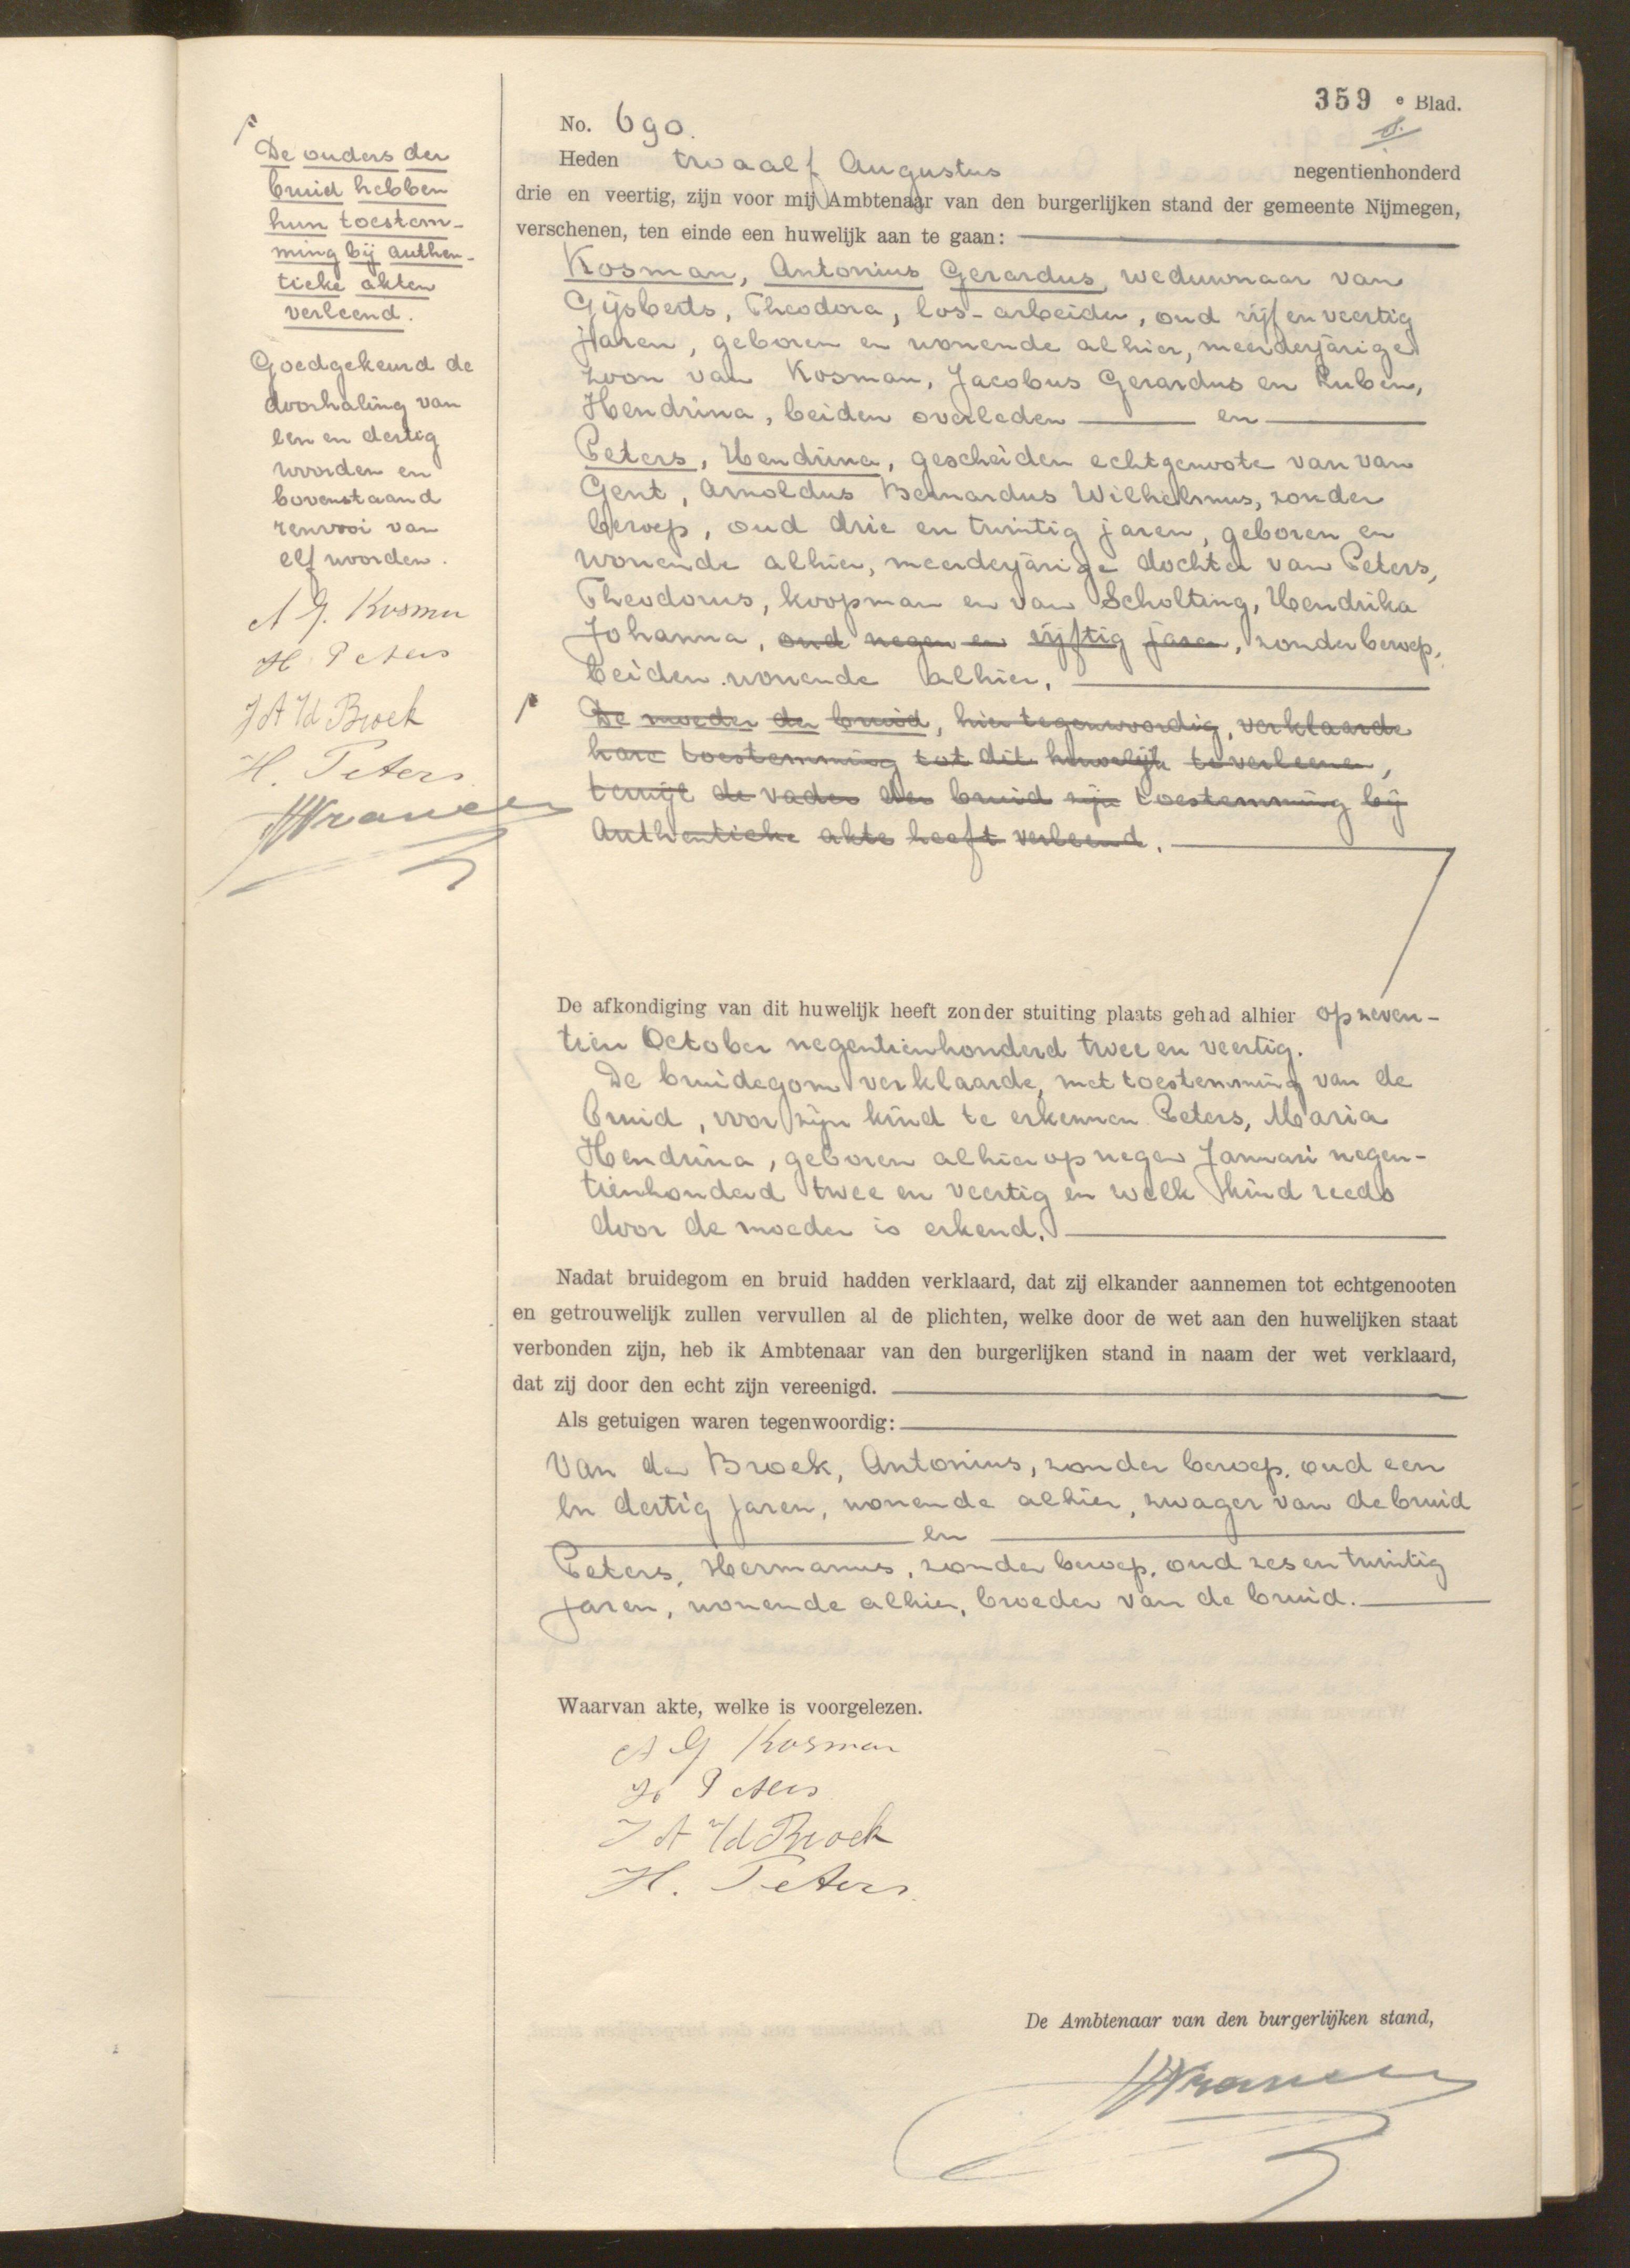 359 e Blad.
De ouders der
bruid hebben
hun toestem-
ming bij authen-
tieke akten
verleend.
Goedgekeurd de
doorhaling van
een en dertig
woorden en
bovenstaand
renvooi van
elf woorden.
A G. Kosman
H Peters
J A Vd Broek
H. Peters
No. 690.
Heden twaalf Augustus negentienhonderd
drie en veertig, zijn voor mij Ambtenaar van den burgerlijken stand der gemeente Nijmegen,
verschenen, ten einde een huwelijk aan te gaan:
Kosman, Antonius Gerardus, weduwnaar van
Gijsberts, Theodora, los-arbeider, oud vijf en veertig
jaren, geboren en wonende alhier, meerderjarige
zoon van Kosman, Jacobus Gerardus en Ruben,
Hendrina, beiden overleden en
Peters, Hendrina, gescheiden echtgenoote van van
Gent, Arnoldus Bernardus Wilhelmus, zonder
beroep, oud drie en twintig jaren, geboren en
wonende alhier, meerderjarige dochter van Peters,
Theodorus, koopman en van Scholting, Hendrika
Johanna, oud negen en vijftig jaren, zonder beroep,
beiden wonende alhier.
De moeder der bruid, hier tegenwoordig, verklaarde
hare toestemming tot dit huwelijk te verleenen,
terwijl de vader der bruid zijn toestemming bij
authentieke akte heeft verleend.
De afkondiging van dit huwelijk heeft zonder stuiting plaats gehad alhier op zeven-
tien October negentienhonderd twee en veertig.
De bruidegom verklaarde, met toestemming van de
bruid, voor zijn kind te erkennen Peters, Maria
Hendrina, geboren alhier op negen Januari negen-
tienhonderd twee en veertig en welk kind reeds
door de moeder is erkend.
Nadat bruidegom en bruid hadden verklaard, dat zij elkander aannemen tot echtgenooten
en getrouwelijk zullen vervullen al de plichten, welke door de wet aan den huwelijken staat
verbonden zijn, heb ik Ambtenaar van den burgerlijken stand in naam der wet verklaard,
dat zij door den echt zijn vereenigd.
Als getuigen waren tegenwoordig:
Van den Broek, Antonius, zonder beroep, oud een
en dertig jaren, wonende alhier, zwager van de bruid
en
Peters, Hermanus, zonder beroep, oud zes en twintig
jaren, wonende alhier, broeder van de bruid.
Waarvan akte, welke is voorgelezen.
A G Kosman
H Peters
J A Vd Broek
H. Peters
De Ambtenaar van den burgerlijken stand,